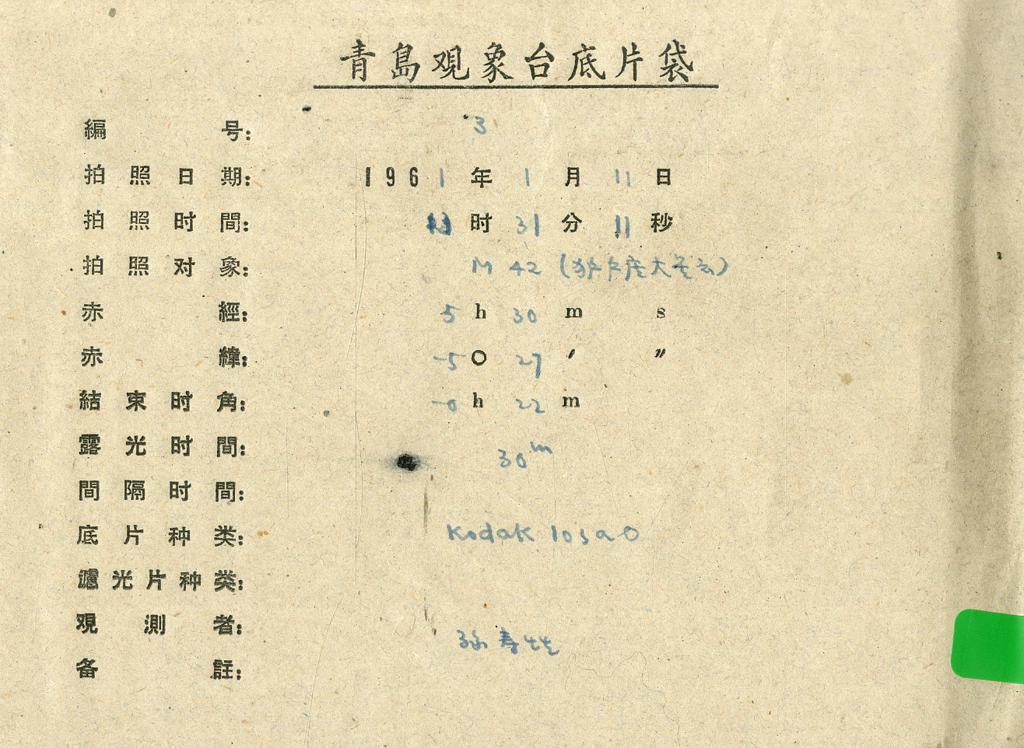 青島观象台底片袋
編号: 3
拍照日期: 1961年1月11日
拍照时間: 时31分11秒
拍照对象: M 42 (座大星云)
赤經: 5h 30m s
赤緯: -5° 27′ ″
結束时角: -0h 22m
露光时間: 30m
間隔时間:
底片种类: Kodak 103aO
濾光片种类:
观測者: 孙寿
备註: